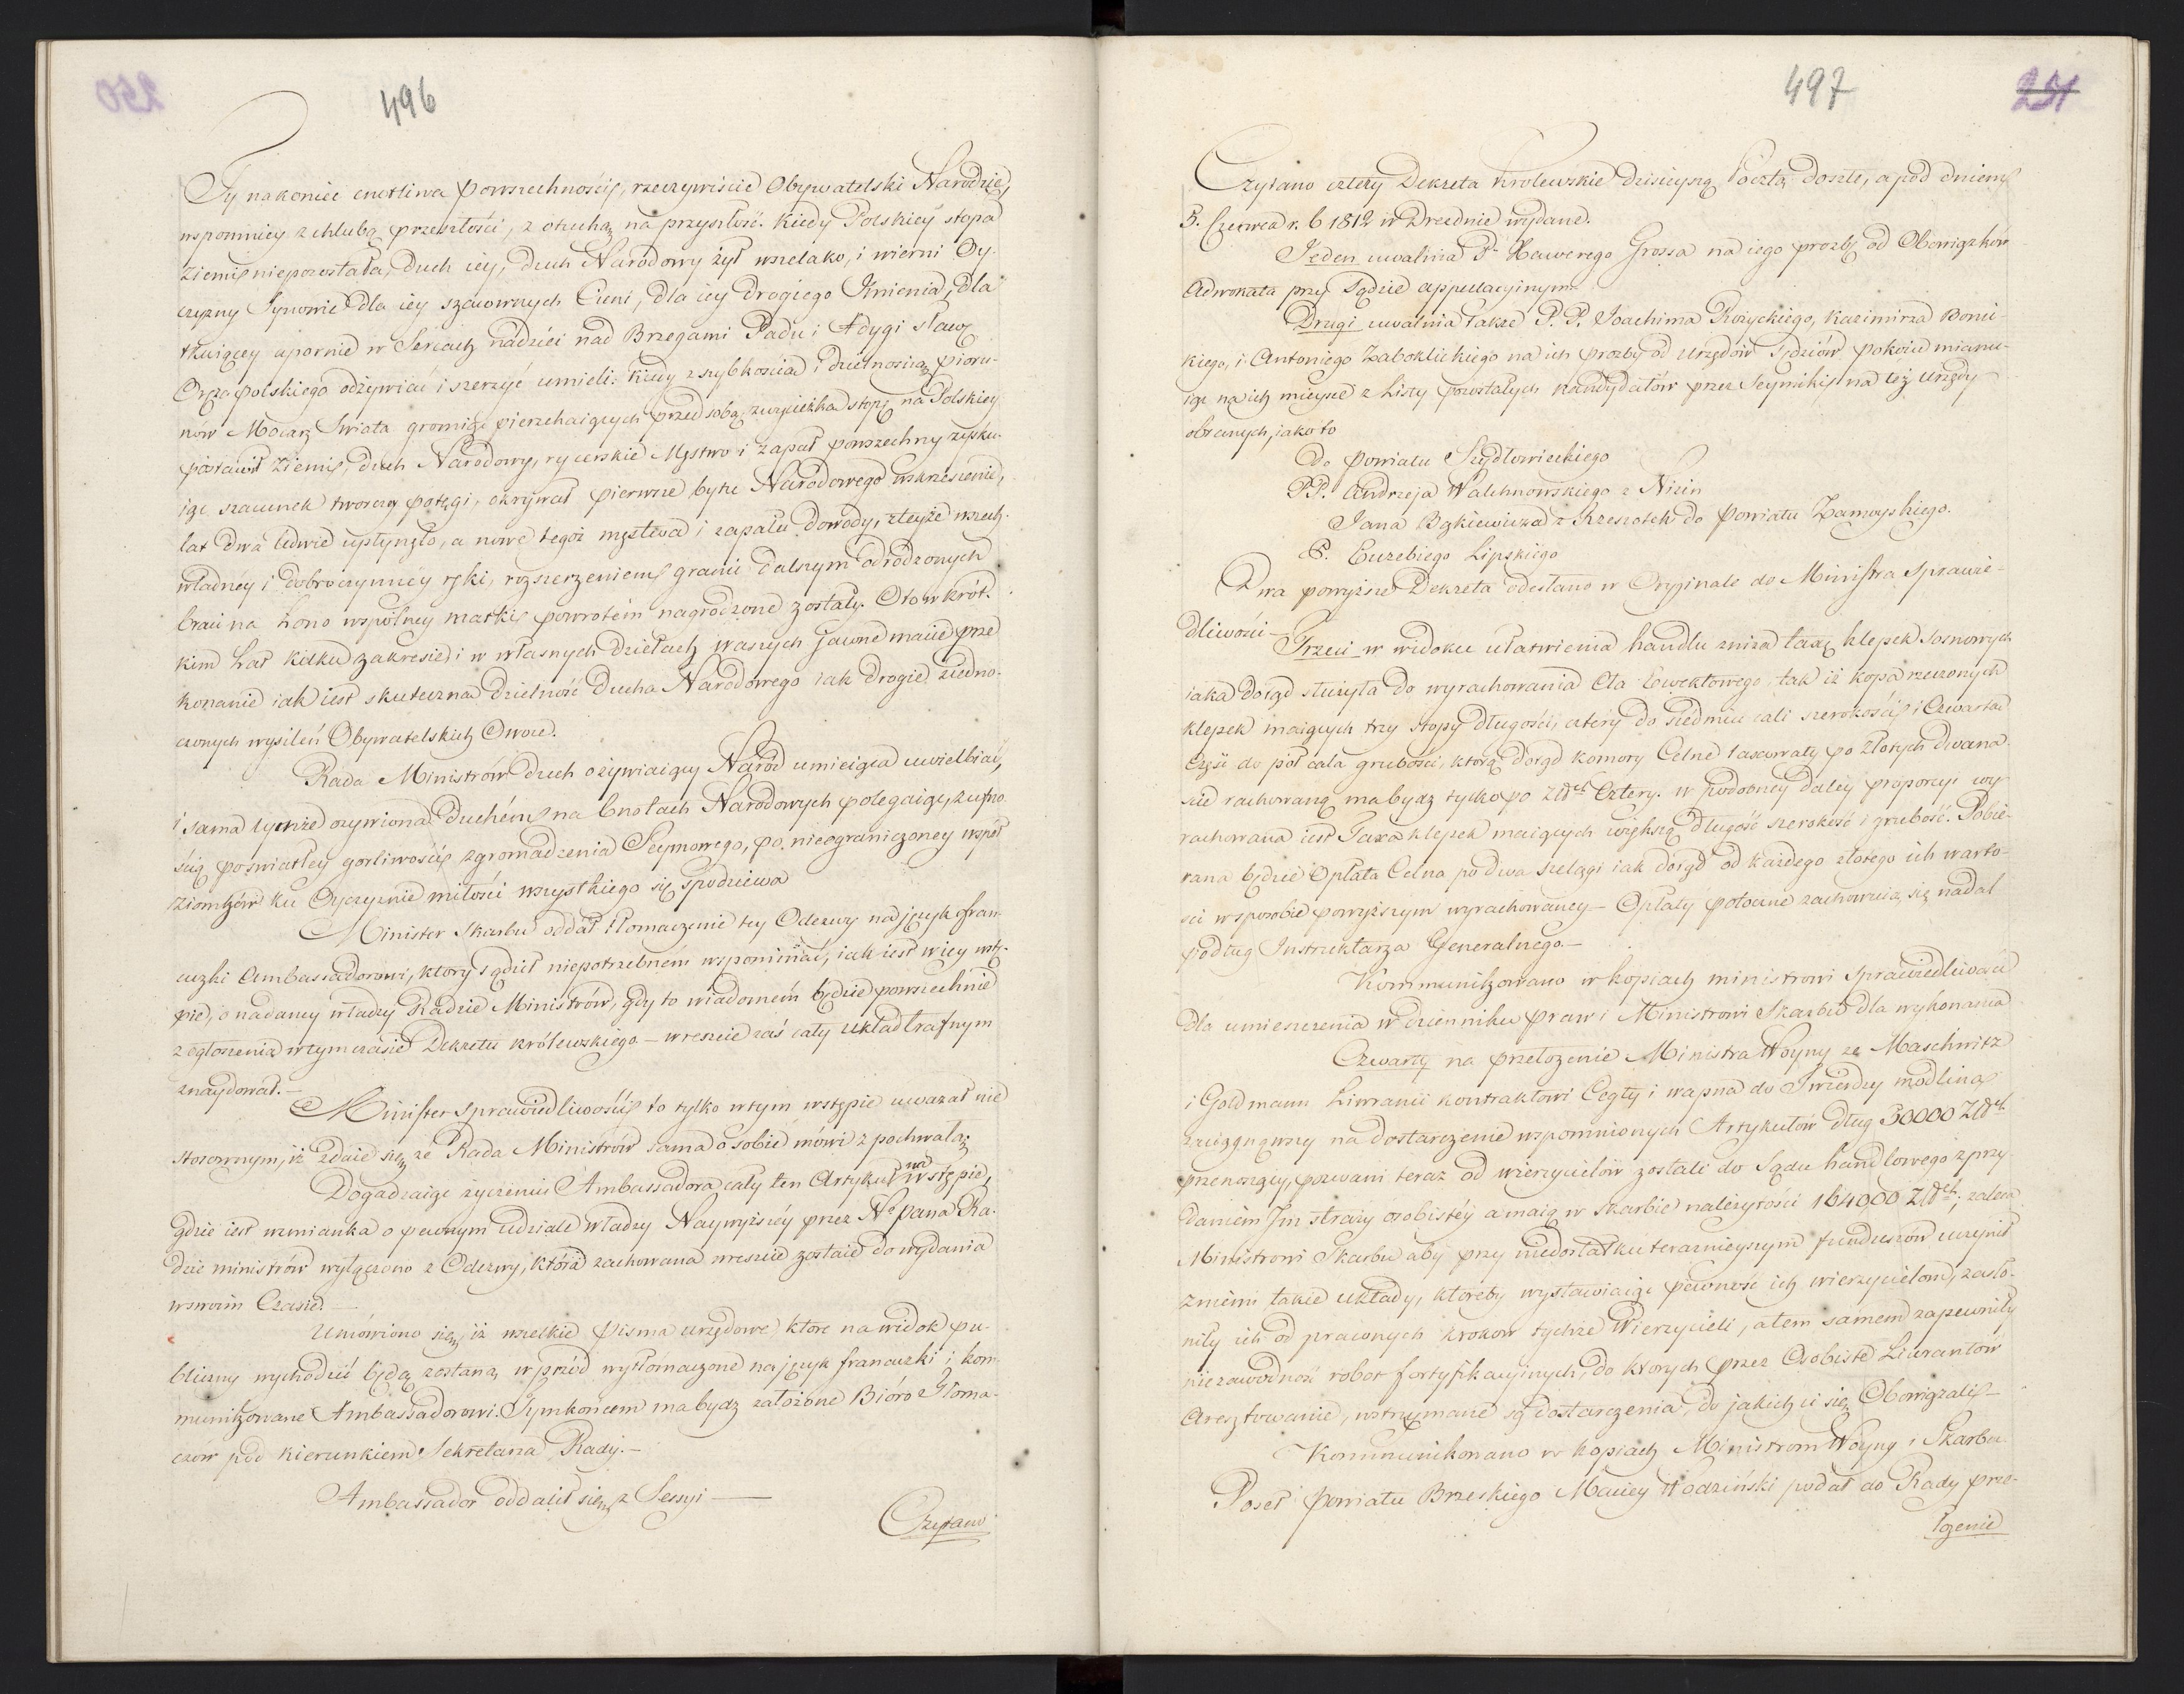 496
Ty nakoniec cnotliwa powszechności, rzeczywiście Obywatelski Narodzie,
wspomniey z chlubą przeszłości, z otuchą na przyszłość. Kiedy Polskiey stopa
Ziemi niepozostała, duch iey, duch Narodowy żył wszelako, i wierni Oy-
czyzny Synowie dla iey szanownych Cieni, dla iey drogiego Imienia, dla
tkwiącey upornie w Sercach nadziei nad Brzegami Padu i Adygi sławę
Oręża polskiego odżywiać i szerzyć umieli: Kiedy z szybkością i dzielnością pioru-
nów Mocarz Swiata gromiąc pierzchaiących przed sobą, zwycięzka stopę na Polskiey
postawił Ziemi, duch Narodowy, rycerskie Męstwo i zapał powszechny zysku-
iąc szacunek tworczey potęgi, okrywał pierwsze bytu Narodowego wskrzeszenie,
lat dwa ledwie upłynęło, a nowe tegoż męstwa i zapału dowody, z teyże wszech-
władney i dobroczynney ręki, rozszerzeniem granic dalszym odrodzonych
braci na Łono wspólney matki powrotem nagrodzone zostały. Oto w krót-
kim Lat kilku zakresie i w własnych dziełach waszych jawne macie prze
konanie iak iest skuteczna dzielność ducha Narodowego iak drogie ziedno-
czonych wysileń Obywatelskich Owoce.
Rada Ministrów duch ożywiaiący Naród umieiąca uwielbiać,
i sama tymże ożywiona duchem, na Cnotach Narodowych polegaiąc, z ufno
ścią po światłey gorliwości zgromadzenia Seymowego, po nieograniczoney współ
ziomków ku Oyczyznie miłości wszystkiego się spodziewa
Minister Skarbu oddał tłomaczenie tey Odezwy na język fran-
cuzki Ambassadorowi, ktory sądził niepotrzebnem wspominać, iak iest w iey wstę-
pie, o nadaney władzy Radzie Ministrów, gdy to wiadomem będzie powszechnie
z ogłoszenia w tymczasie Dekretu królewskiego — wreszcie zaś cały układ trafnym
znaydował. —
Minister Sprawiedliwości to tylko w tym wstępie uważał nie
stosownym, iż zdaie się, że Rada Ministrów sama o sobie mówi z pochwałą;
Dogadzaiąc życzeniu Ambassadora cały ten Artykuł na wstępie,
gdzie iest wzmianka o pewnym udziale władzy Naywyższéy przez Nº Pana Ra-
dzie ministrów wyłączono z Odezwy, która zachowana wreszcie zostaie do wydania
w swoim Czasie. —
Umówiono się, iż wszelkie pisma urzędowe, ktore na widok pu-
bliczny wychodzić będą zostaną w przód wytłómaczone na język francuzki i kom-
munikowane Ambassadorowi. Tym końcem ma bydz założone Bióro Tłoma-
czów pod kierunkiem Sekretarza Rady. —
Ambassador oddalił się z Sessyi —
Czytano
497
251
Czytano cztery Dekreta Krolewskie dzisieyszą Pocztą doszłe, a pod dniem
5. Czerwca r. b 1812 w Dreznie wydane.
Jeden uwalnia P. Xawerego Grossa na iego prozbę od Obowiązków
Adwokata przy Sądzie appellacyinym.
Drugi uwalnia także P. P. Joachima Rożyckiego, Kazimirza Bonie-
kiego, i Antoniego Zaboklickiego na ich prozby od Urzędów Sędziów pokoiu mianu-
iąc na ich mieysce z Listy pozostałych kandydatów przez Seymiki na też Urzędy
obranych, iako to
Do powiatu Szydłowieckiego
PP. Andrzeja Walchnowskiego z Nizin
Jana Bąkiewicza z Rzeszotek do powiatu Zamoyskiego.
P. Euzebiego Lipskiego
Dwa powyższe Dekreta odesłano w Oryginale do Ministra Sprawie-
dliwości —
Trzeci w widoku ułatwienia handlu zniża taxę klepek sosnowych
iaka dotąd służyła do wyrachowania Cła Ewektowego, tak iż kopa rzeczonych
klepek maiących trzy stopy długości, cztery do siedmiu cali szerokości i Czwarta
część do poł cala grubości, którą dotąd komory Celne taxowały po złotych dwana-
scie rachowaną ma bydz tylko po Złłch Cztery. w podobney daléy proporcyi wy
rachowana iest Taxa klepek maiących większą długość szerokość i grubość. Pobie-
rana będzie Opłata Celna po dwa szelągi iak dotąd od każdego złotego ich warto-
ści w sposobie powyższym wyrachowaney — Opłaty potoczne zachowuią się nadal
podług Instruktarza Generalnego. —
Kommunikowano w kopiach ministrowi Sprawiedliwości
dla umieszczenia w dzienniku praw i Ministrowi Skarbu dla wykonania
Czwarty na przełożenie Ministra Woyny że Maschwitz
i Goldmann Liwranci kontraktowi Cegły i wapna do Twierdzy modlina
zaciągnąwszy na dostarczenie wspomnionych Artykułów dług 50000 Złłch
przenoszący, pozwani teraz od wierzycielów zostali do Sądu handlowego z przy-
daniem Im straży osobistéy a maią w skarbie należytości 164000 Złłch, zaleca
Ministrowi Skarbu aby przy niedostatku teraznieyszym funduszów uczynił
z niemi takie układy, któreby wystawiaiąc pewność ich wierzycielom, zasło-
niły ich od prawnych kroków tychże Wierzycieli, a tem samem zapewniły
niezawodność robot fortyfikacyinych, do ktorych przez Osobiste Liwrantów
Aresztowanie, wstrzymane są dostarczenia, do jakich ci się Obowiązali —
Kommunikowano w kopiach Ministrom Woyny i Skarbu.
Poseł powiatu Brzeskiego Maciey Wodziński podał do Rady prze-
łożenie